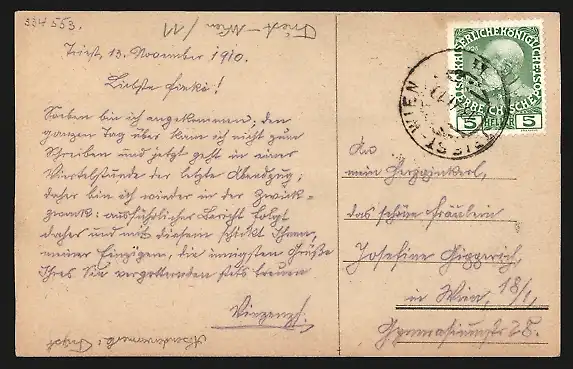 334553.
Triest-Wien / 11
Triest, 13. November 1910.
Liebste Finki!
Soeben bin ich angekommen, den
ganzen Tag über kam ich nicht zum
Schreiben und jetzt geht in einer
Viertelstunde der letzte Abendzug;
daher bin ich wieder in der Zwick-
: ausführlicher Bericht folgt
daher und mit diesem schickt Ihnen,
meiner Einzigen, die innigsten Grüße
Ihres Sie vergötternden stets treuen
Vinzenz.
TRIEST-WIEN
11
KAISERLICHE KÖNIGLICHE
5 HELLER 5
An
mein Herzpinkerl,
das schöne Fräulein
Josefine Giggerich,
in Wien, 18/1,
Gymnasiumstr 28.